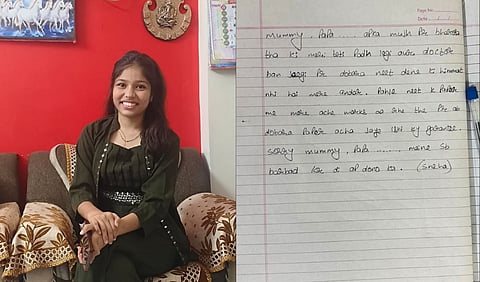 Page No.
Date
Mummy, Papa ..... apka mujh Pr bharosa
tha ki meri beti Padh legi aur doctor
ban Jaegi Pr dobaha neet dene ki himmat
nhi hai mere andar. Pahle neet k Paper
me mere ache marks aa rhe the Pr ab
dobaha PaPer acha Jaye iski ky garantee.
sorry mummy, Papa ........ maine sb
barbad kr d ap dono ka. (Sneha)